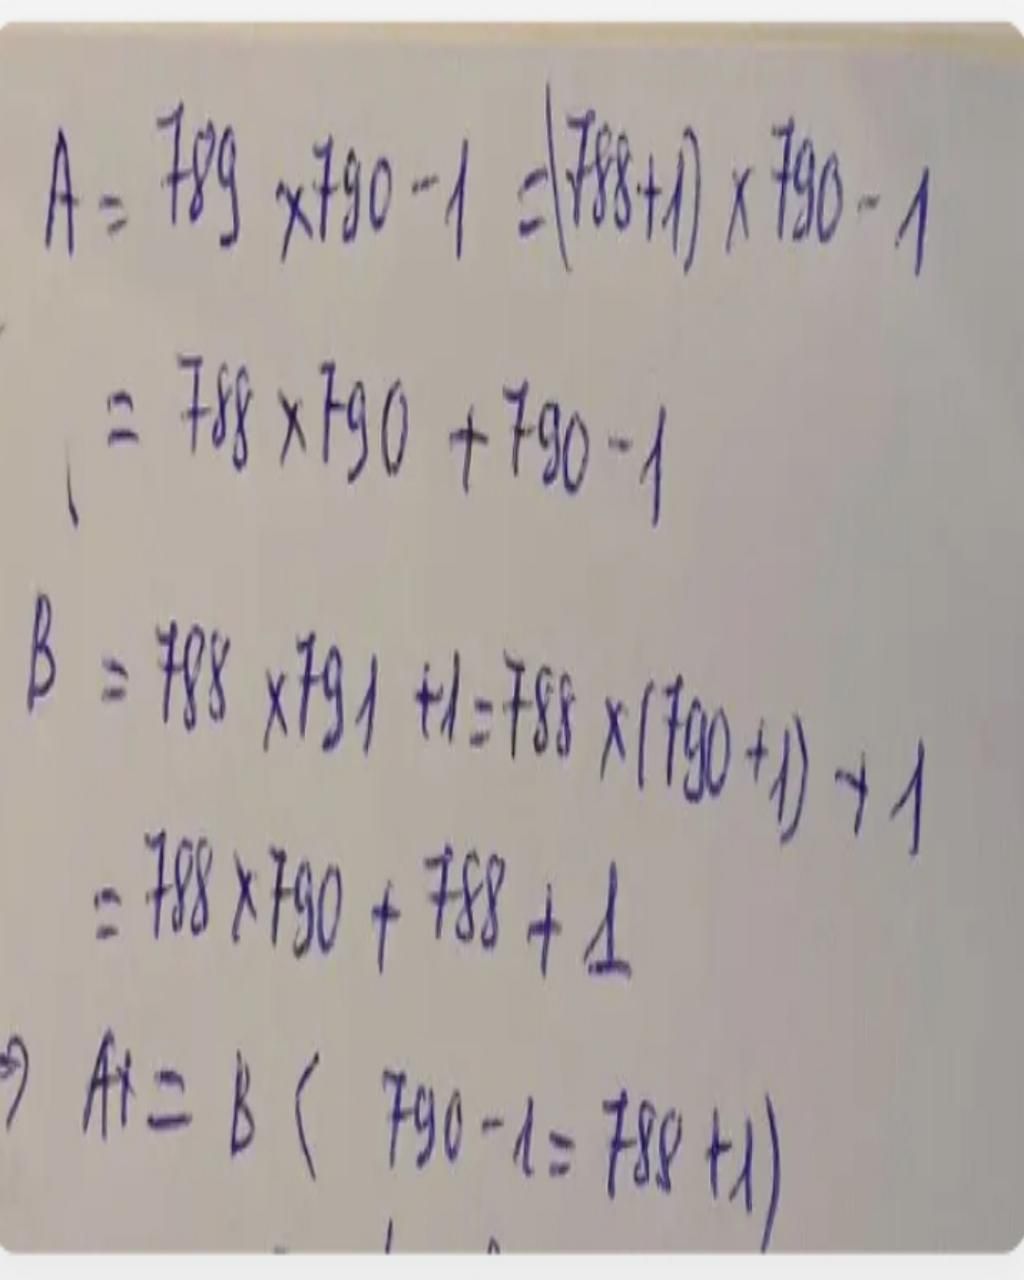 A = 789 × 790 - 1 = (788+1) × 790 - 1
= 788 × 790 + 790 - 1
B = 788 × 791 + 1 = 788 × (790 + 1) + 1
= 788 × 790 + 788 + 1
⇒ A = B ( 790 - 1 = 788 + 1)